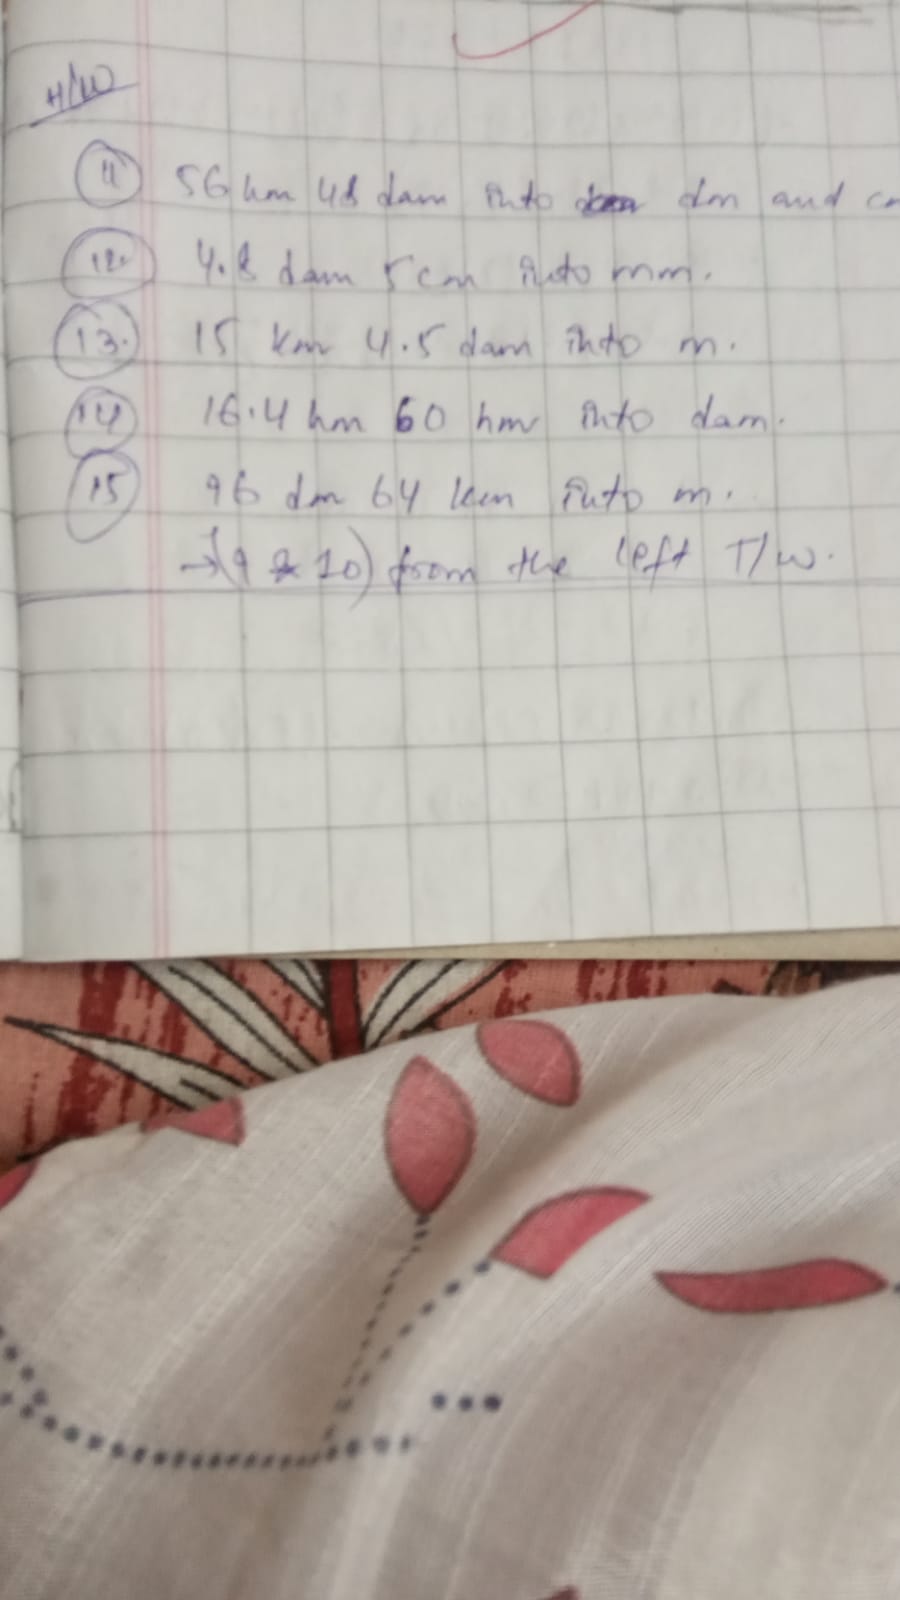 H/W
11 56 hm 48 dam into dm and
12. 4.8 dam 5 cm into mm.
13. 15 km 4.5 dam into m.
14 16.4 hm 60 hm into dam.
15 96 dm 64 km into m.
→ (9 & 10) from the left T/W.